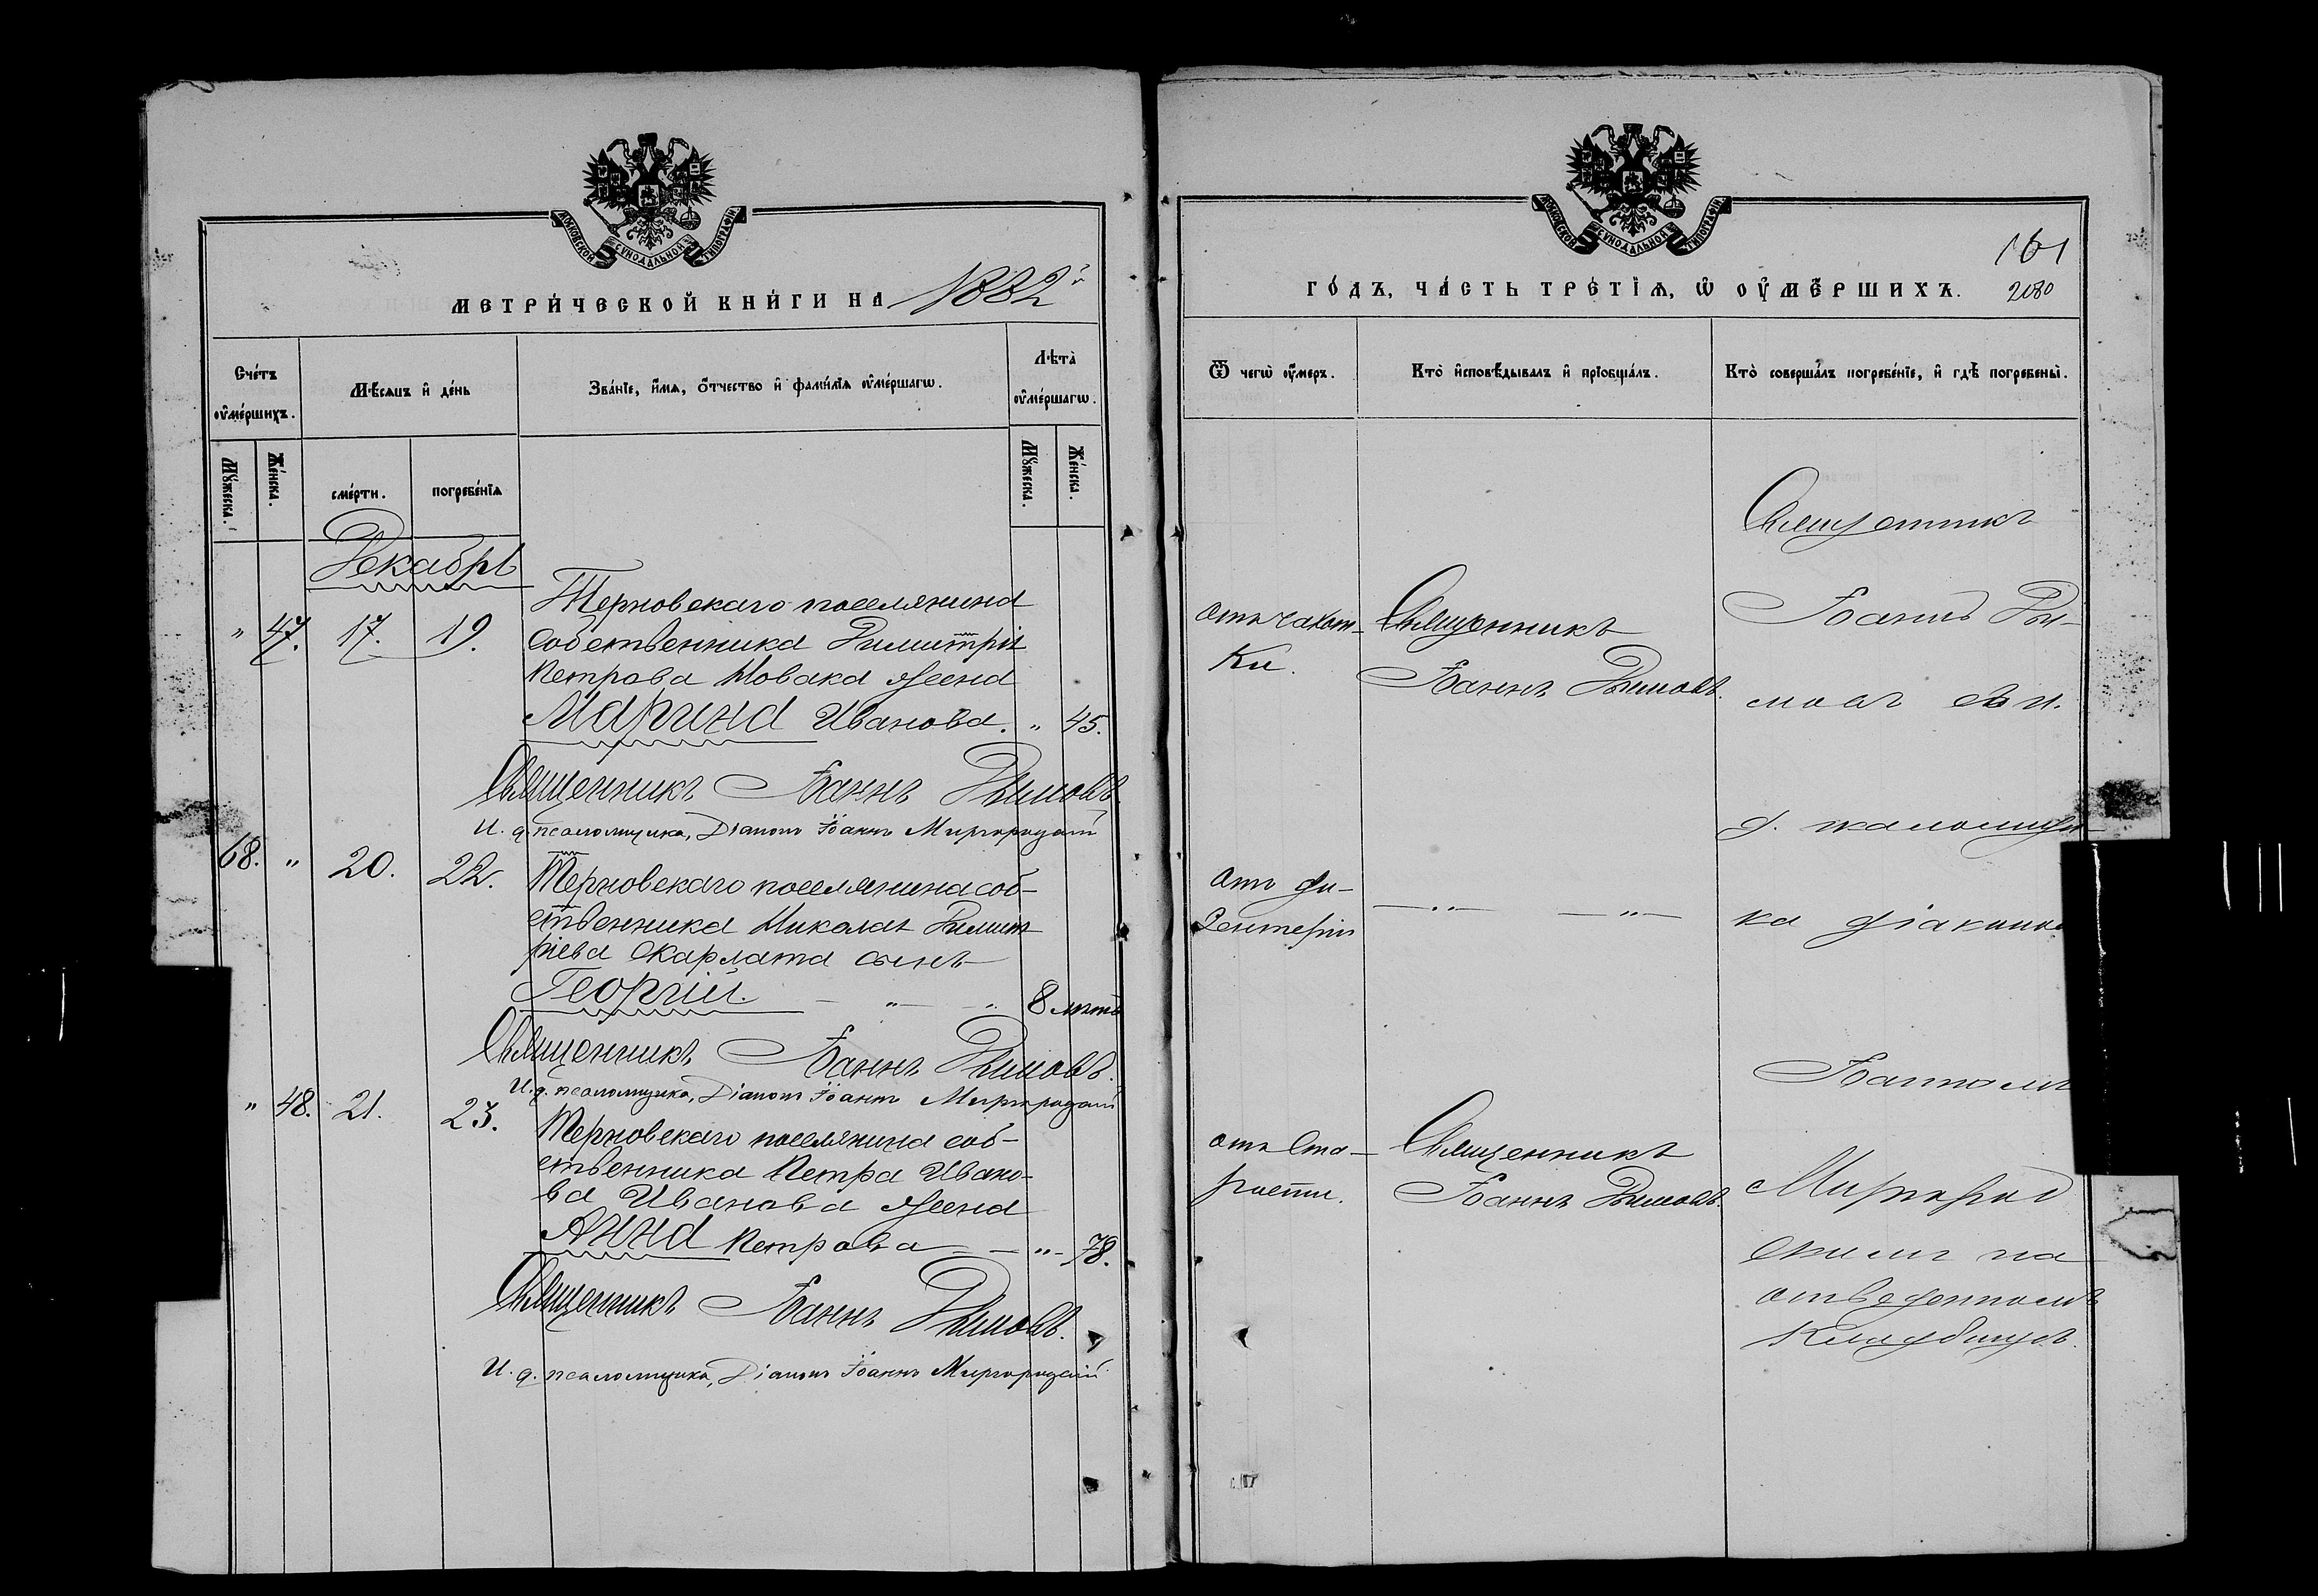 МОСКОВСКОЙ СУНОДАЛЬНОЙ ТИПОГРАФІИ
МЕТРИ́ЧЕСКОЙ КНИ́ГИ НА 1882й
Сче́тъ оу҆ме́ршихъ.
Мѣ́сѧцъ и҆ де́нь
Зва́нїе, и҆́мѧ, ѻ҆́тчество и҆ фами́лїѧ оу҆ме́ршагѡ.
Лѣ́та оу҆ме́ршагѡ.
Мꙋ́жеска.
Же́нска.
сме́рти.
погребе́нїѧ
Мꙋ́жеска.
Же́нска.
Декабрь
" 47. 17. 19. Терновскаго поселянина
собственника Димитрія
Петрова Новака жена
Марина Иванова. " 45.
Священникъ Іоаннъ Дымовъ
И. д. псаломщика, Діаконъ Іоаннъ Миргородскій
68. " 20. 22. Терновскаго поселянина соб-
ственника Николая Димит
ріева Скарлата сынъ
Георгій. — " — " 8 лѣтъ
Священникъ Іоаннъ Дымовъ.
И. д. псаломщика, Діаконъ Іоаннъ Миргородскій
" 48. 21. 23. Терновскаго поселянина соб-
ственника Петра Ивано-
ва Иванова жена
Анна Петрова — " — 78.
Священникъ Іоаннъ Дымовъ.
И. д. псаломщика, Діаконъ Іоаннъ Миргородскій
МОСКОВСКОЙ СУНОДАЛЬНОЙ ТИПОГРАФІИ
161
ГО́ДЪ, ЧА́СТЬ ТРЕ́ТЇѦ, Ѡ҆ ОУ҆МЕ́РШИХЪ. 2080
Ѿ чегѡ̀ оу҆́меръ.
Кто̀ и҆сповѣ́дывалъ и҆ прїобща́лъ.
Кто̀ соверша́лъ погребе́нїе, и҆ гдѣ̀ погребены̀.
отъ чахот-
ки.
Священникъ
Іоаннъ Дымовъ.
отъ ди-
зентеріи
— " — — " —
отъ Ста-
рости.
Священникъ
Іоаннъ Дымовъ.
Священникъ
Іоаннъ Ды-
мовъ съ и.
д. псаломщи-
ка діакono
Іоанномъ
Миргород
скимъ на
отведенномъ
кладбищѣ.